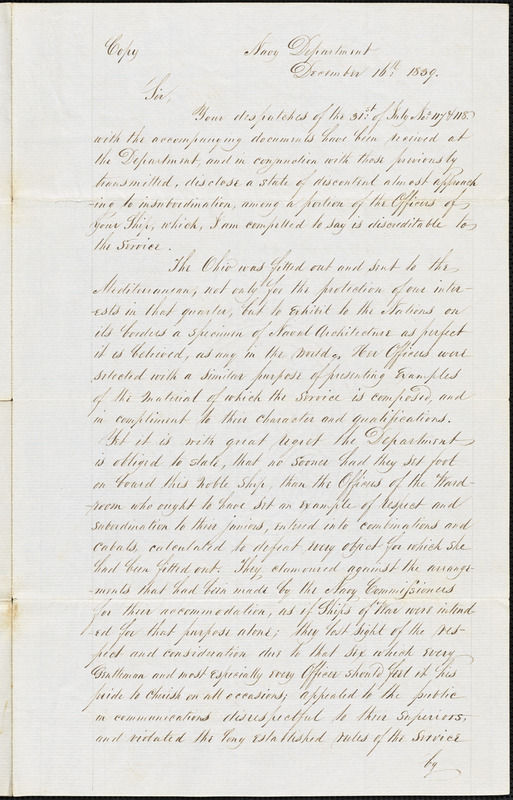 Copy Navy Department
December 16th 1839.
Sir,
Your despatches of the 31st of July Nos 117 & 118
with the accompanying documents have been received at
the Department, and in conjunction with those previously
transmitted, disclose a state of discontent almost approach
ing to insubordination, among a portion of the Officers of
your Ship, which, I am compelled to say is discreditable to
the Service.
The Ohio was fitted out and sent to the
Mediterranean, not only for the protection of our inter-
ests in that quarter, but to exhibit to the Nations on
its borders a specimen of Naval Architecture as perfect
it is believed, as any in the world. Her Officers were
selected with a similar purpose of presenting examples
of the material of which the service is composed, and
in compliment to their character and qualifications.
Yet it is with great regret the Department
is obliged to state, that no sooner had they set foot
on board this noble Ship, than the Officers of the Ward-
room who ought to have set an example of respect and
subordination to their juniors, entered into combinations and
cabals, calculated to defeat every object for which she
had been fitted out. They clamoured against the arrange-
ments that had been made by the Navy Commissioners
for their accommodation, as if Ships of War were intend-
ed for that purpose alone; they lost sight of the res-
pect and consideration due to that sex which every
Gentleman and most especially every Officer should feel it his
pride to cherish on all occasions; appealed to the public
in communications disrespectful to their Superiors,
and violated the long established rules of the Service
by